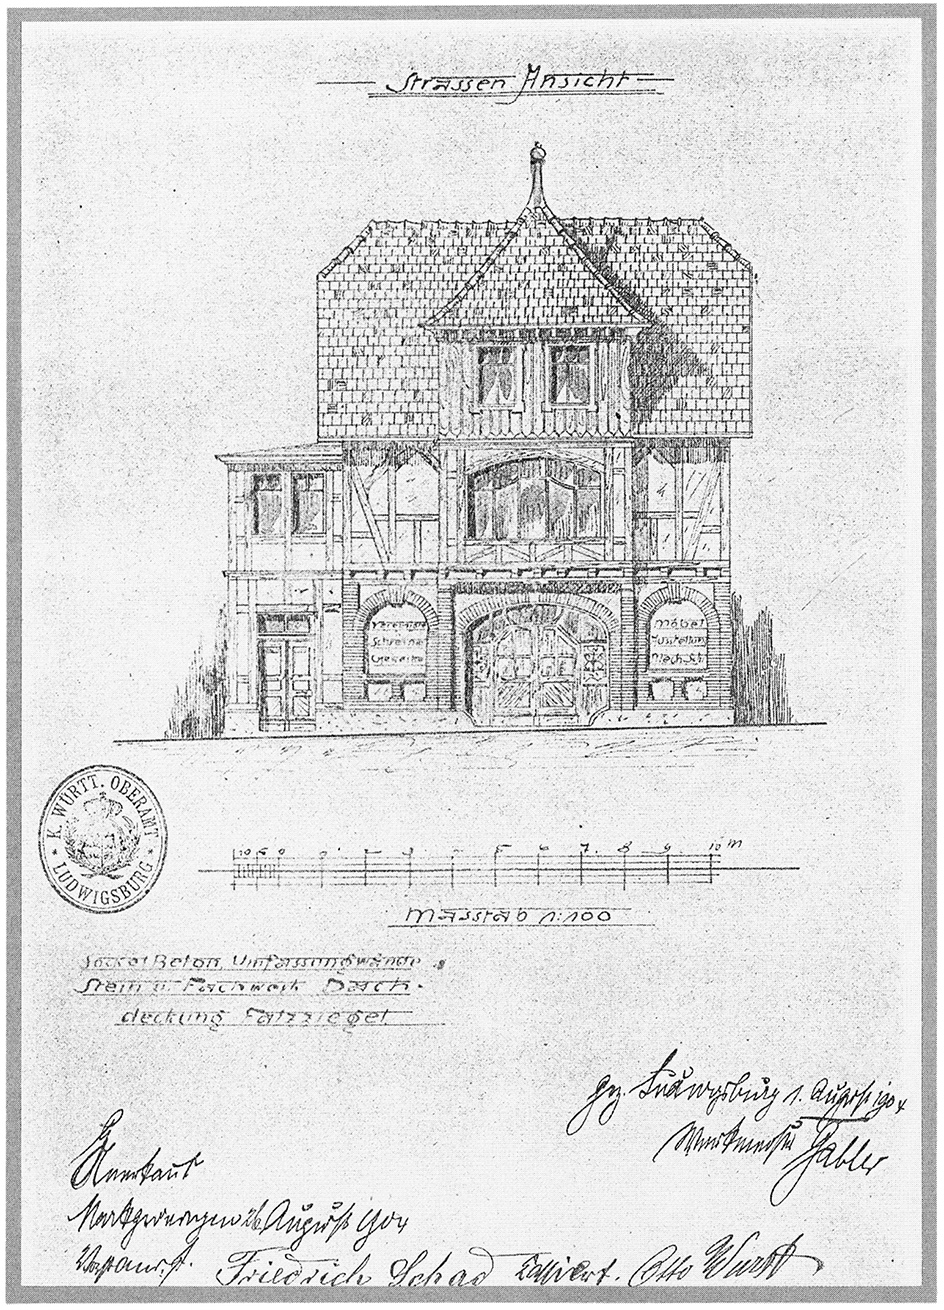 Strassen Ansicht
Vereinigte
Schreiner
Gewerbe
Möbel
Ausstellung
K. WÜRTT. OBERAMT
LUDWIGSBURG
10 5 0 1 2 3 5 6 7. 8 9. 10 m
Masstab 1:100
Sockel Beton, Umfassungswände
Stein u. Fachwerk Dach-
deckung Falzziegel
Gez. Ludwigsburg 1. August 1904
Werkmeister Gabler
Anerkannt
Markgröningen 26 August 1904
Vorstand. Friedrich Schad Kassiert. Otto Wurst